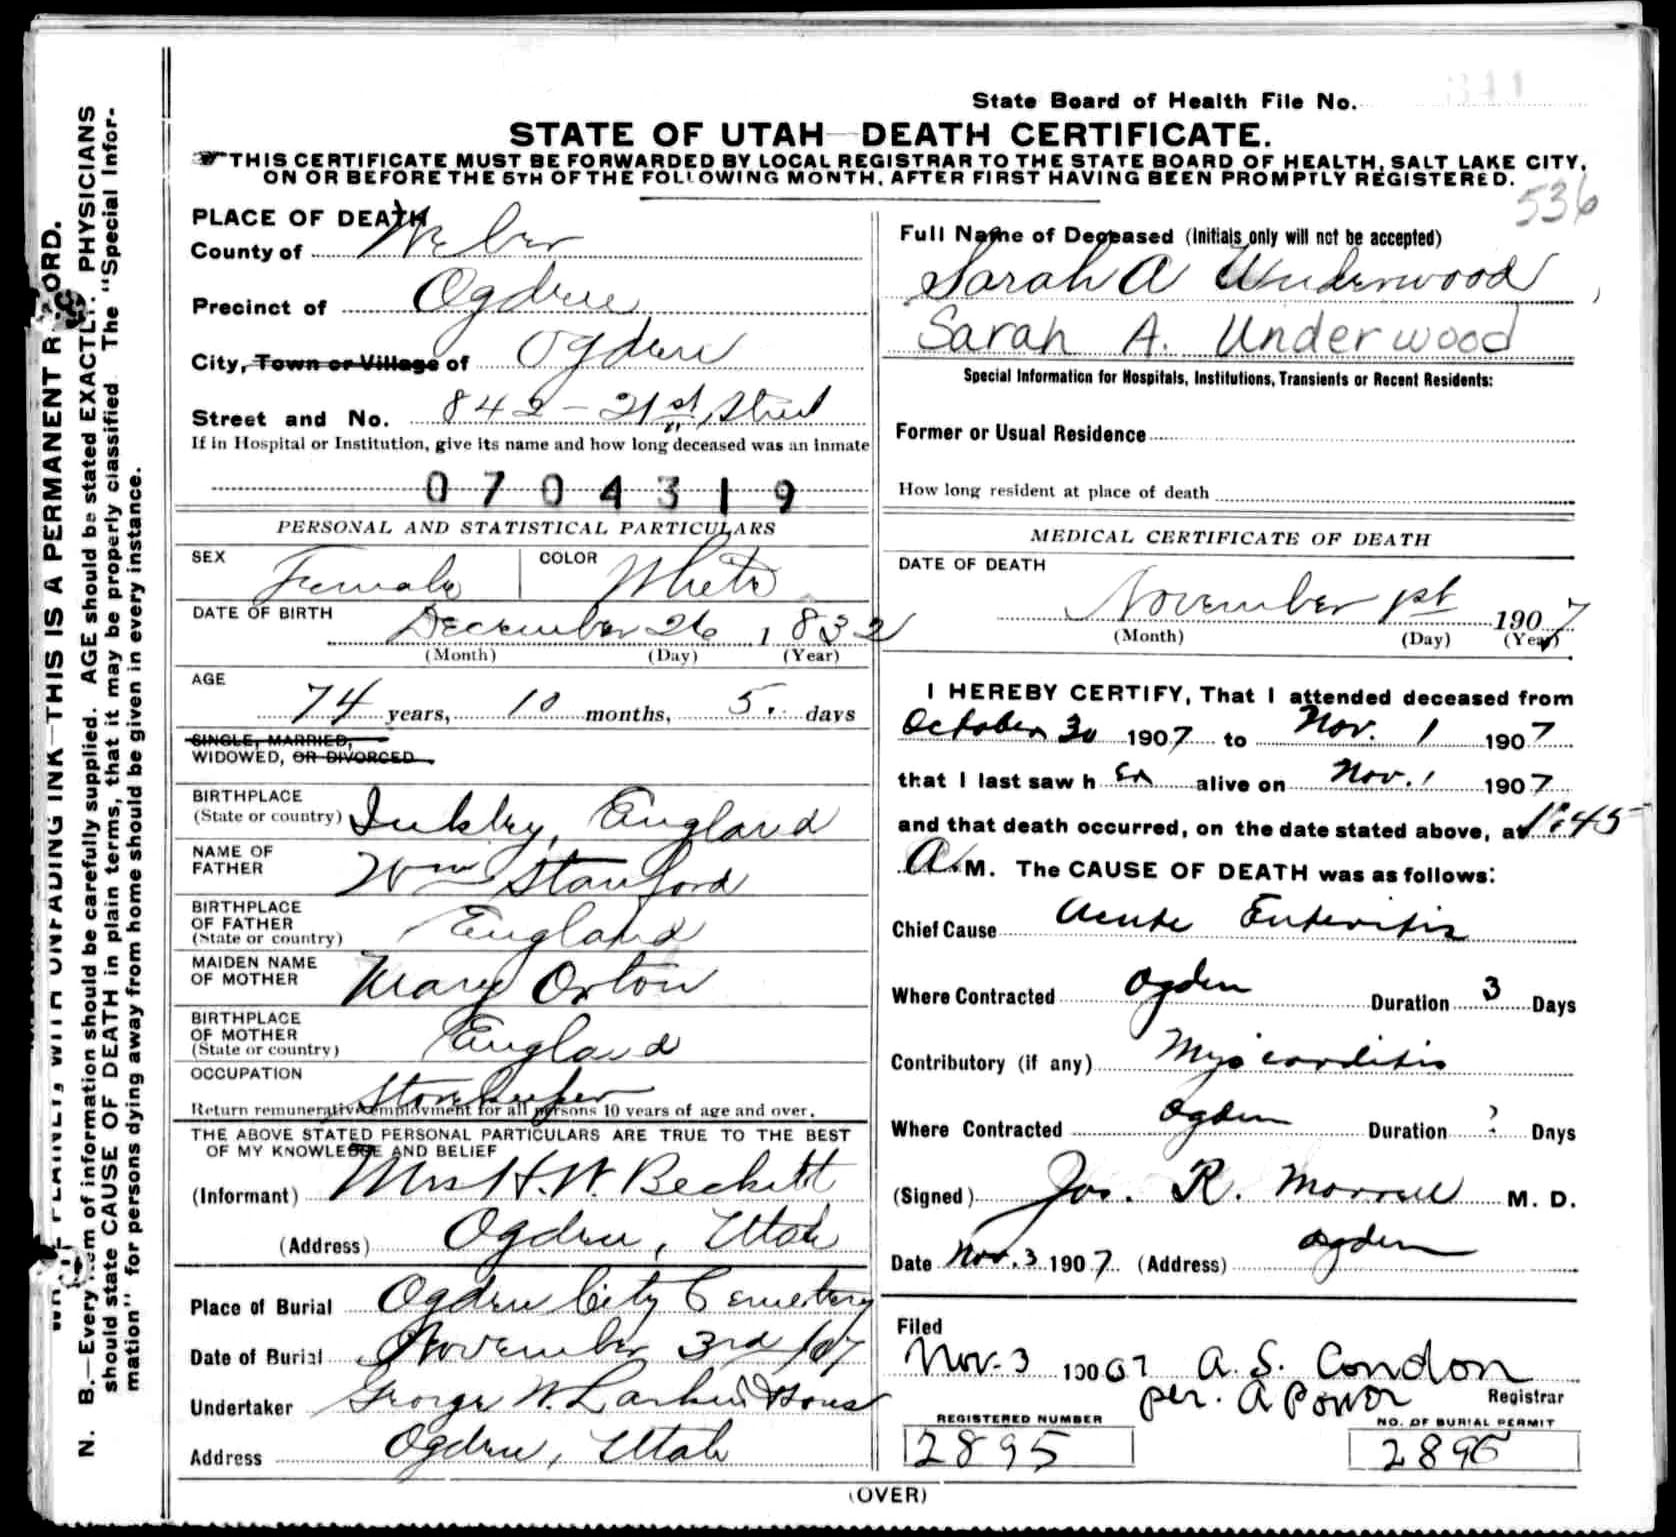 State Board of Health File No.
STATE OF UTAH—DEATH CERTIFICATE.
THIS CERTIFICATE MUST BE FORWARDED BY LOCAL REGISTRAR TO THE STATE BOARD OF HEALTH, SALT LAKE CITY,
ON OR BEFORE THE 5TH OF THE FOLLOWING MONTH, AFTER FIRST HAVING BEEN PROMPTLY REGISTERED.
536
PLACE OF DEATH
County of Weber
Precinct of Ogden
City, Town or Village of Ogden
Street and No. 842 - 21st Street
If in Hospital or Institution, give its name and how long deceased was an inmate
0704319
PERSONAL AND STATISTICAL PARTICULARS
SEX Female COLOR White
DATE OF BIRTH
December 26 1832
(Month) (Day) (Year)
AGE
74 years, 10 months, 5 days
SINGLE, MARRIED,
WIDOWED, OR DIVORCED
BIRTHPLACE
(State or country) England
NAME OF
FATHER Wm Stanford
BIRTHPLACE
OF FATHER
(State or country) England
MAIDEN NAME
OF MOTHER Mary Orton
BIRTHPLACE
OF MOTHER
(State or country) England
OCCUPATION Storekeeper
Return remunerative employment for all persons 10 years of age and over.
THE ABOVE STATED PERSONAL PARTICULARS ARE TRUE TO THE BEST
OF MY KNOWLEDGE AND BELIEF
(Informant) Mrs H. W. Beckett
(Address) Ogden, Utah
Place of Burial Ogden City Cemetery
Date of Burial November 3rd /07
Undertaker George W. Larkin & Sons
Address Ogden, Utah
Full Name of Deceased (Initials only will not be accepted)
Sarah A Underwood
Sarah A. Underwood
Special Information for Hospitals, Institutions, Transients or Recent Residents:
Former or Usual Residence
How long resident at place of death
MEDICAL CERTIFICATE OF DEATH
DATE OF DEATH
November 1st 1907
(Month) (Day) (Year)
I HEREBY CERTIFY, That I attended deceased from
October 30 1907 to Nov. 1 1907
that I last saw h er alive on Nov. 1 1907
and that death occurred, on the date stated above, at 1:45
A. M. The CAUSE OF DEATH was as follows:
Chief Cause Acute Enteritis
Where Contracted Ogden Duration 3 Days
Contributory (if any) Myocarditis
Where Contracted Ogden Duration ? Days
(Signed) Jos. R. Morrell M. D.
Date Nov. 3 1907 (Address) Ogden
Filed
Nov. 3 19007 A. S. Condon
per. A Power Registrar
REGISTERED NUMBER NO. OF BURIAL PERMIT
2895 2895
(OVER)
N. B.—Every item of information should be carefully supplied. AGE should be stated EXACTLY. PHYSICIANS
should state CAUSE OF DEATH in plain terms, that it may be properly classified. The "Special Infor-
mation" for persons dying away from home should be given in every instance.
PLAINLY, WITH UNFADING INK—THIS IS A PERMANENT RECORD.